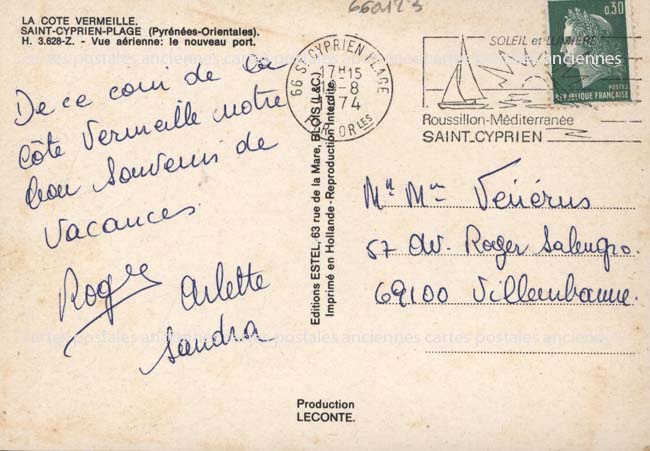 LA COTE VERMEILLE.
SAINT-CYPRIEN-PLAGE (Pyrénées-Orientales).
H. 3.628-Z. - Vue aérienne: le nouveau port.
660123
De ce coin de la
Côte Vermeille notre
bon Souvenir de
Vacances
Roger Arlette
Sandra
66 ST CYPRIEN PLAGE
17H15
-8
1974
PYR. ORLES
SOLEIL et LUMIERE
Roussillon-Méditerranée
SAINT-CYPRIEN
0,30
POSTES
REPUBLIQUE FRANÇAISE
Editions ESTEL, 63 rue de la Mare, BLOIS (L.&C.)
Imprimé en Hollande - Reproduction Interdite
Mr Mme Vénérus
57 av. Roger Salengro.
69100 Villeurbanne.
Production
LECONTE.
cartes postales anciennes cartes postales anciennes cartes postales anciennes
cartes postales anciennes cartes postales anciennes cartes postales anciennes